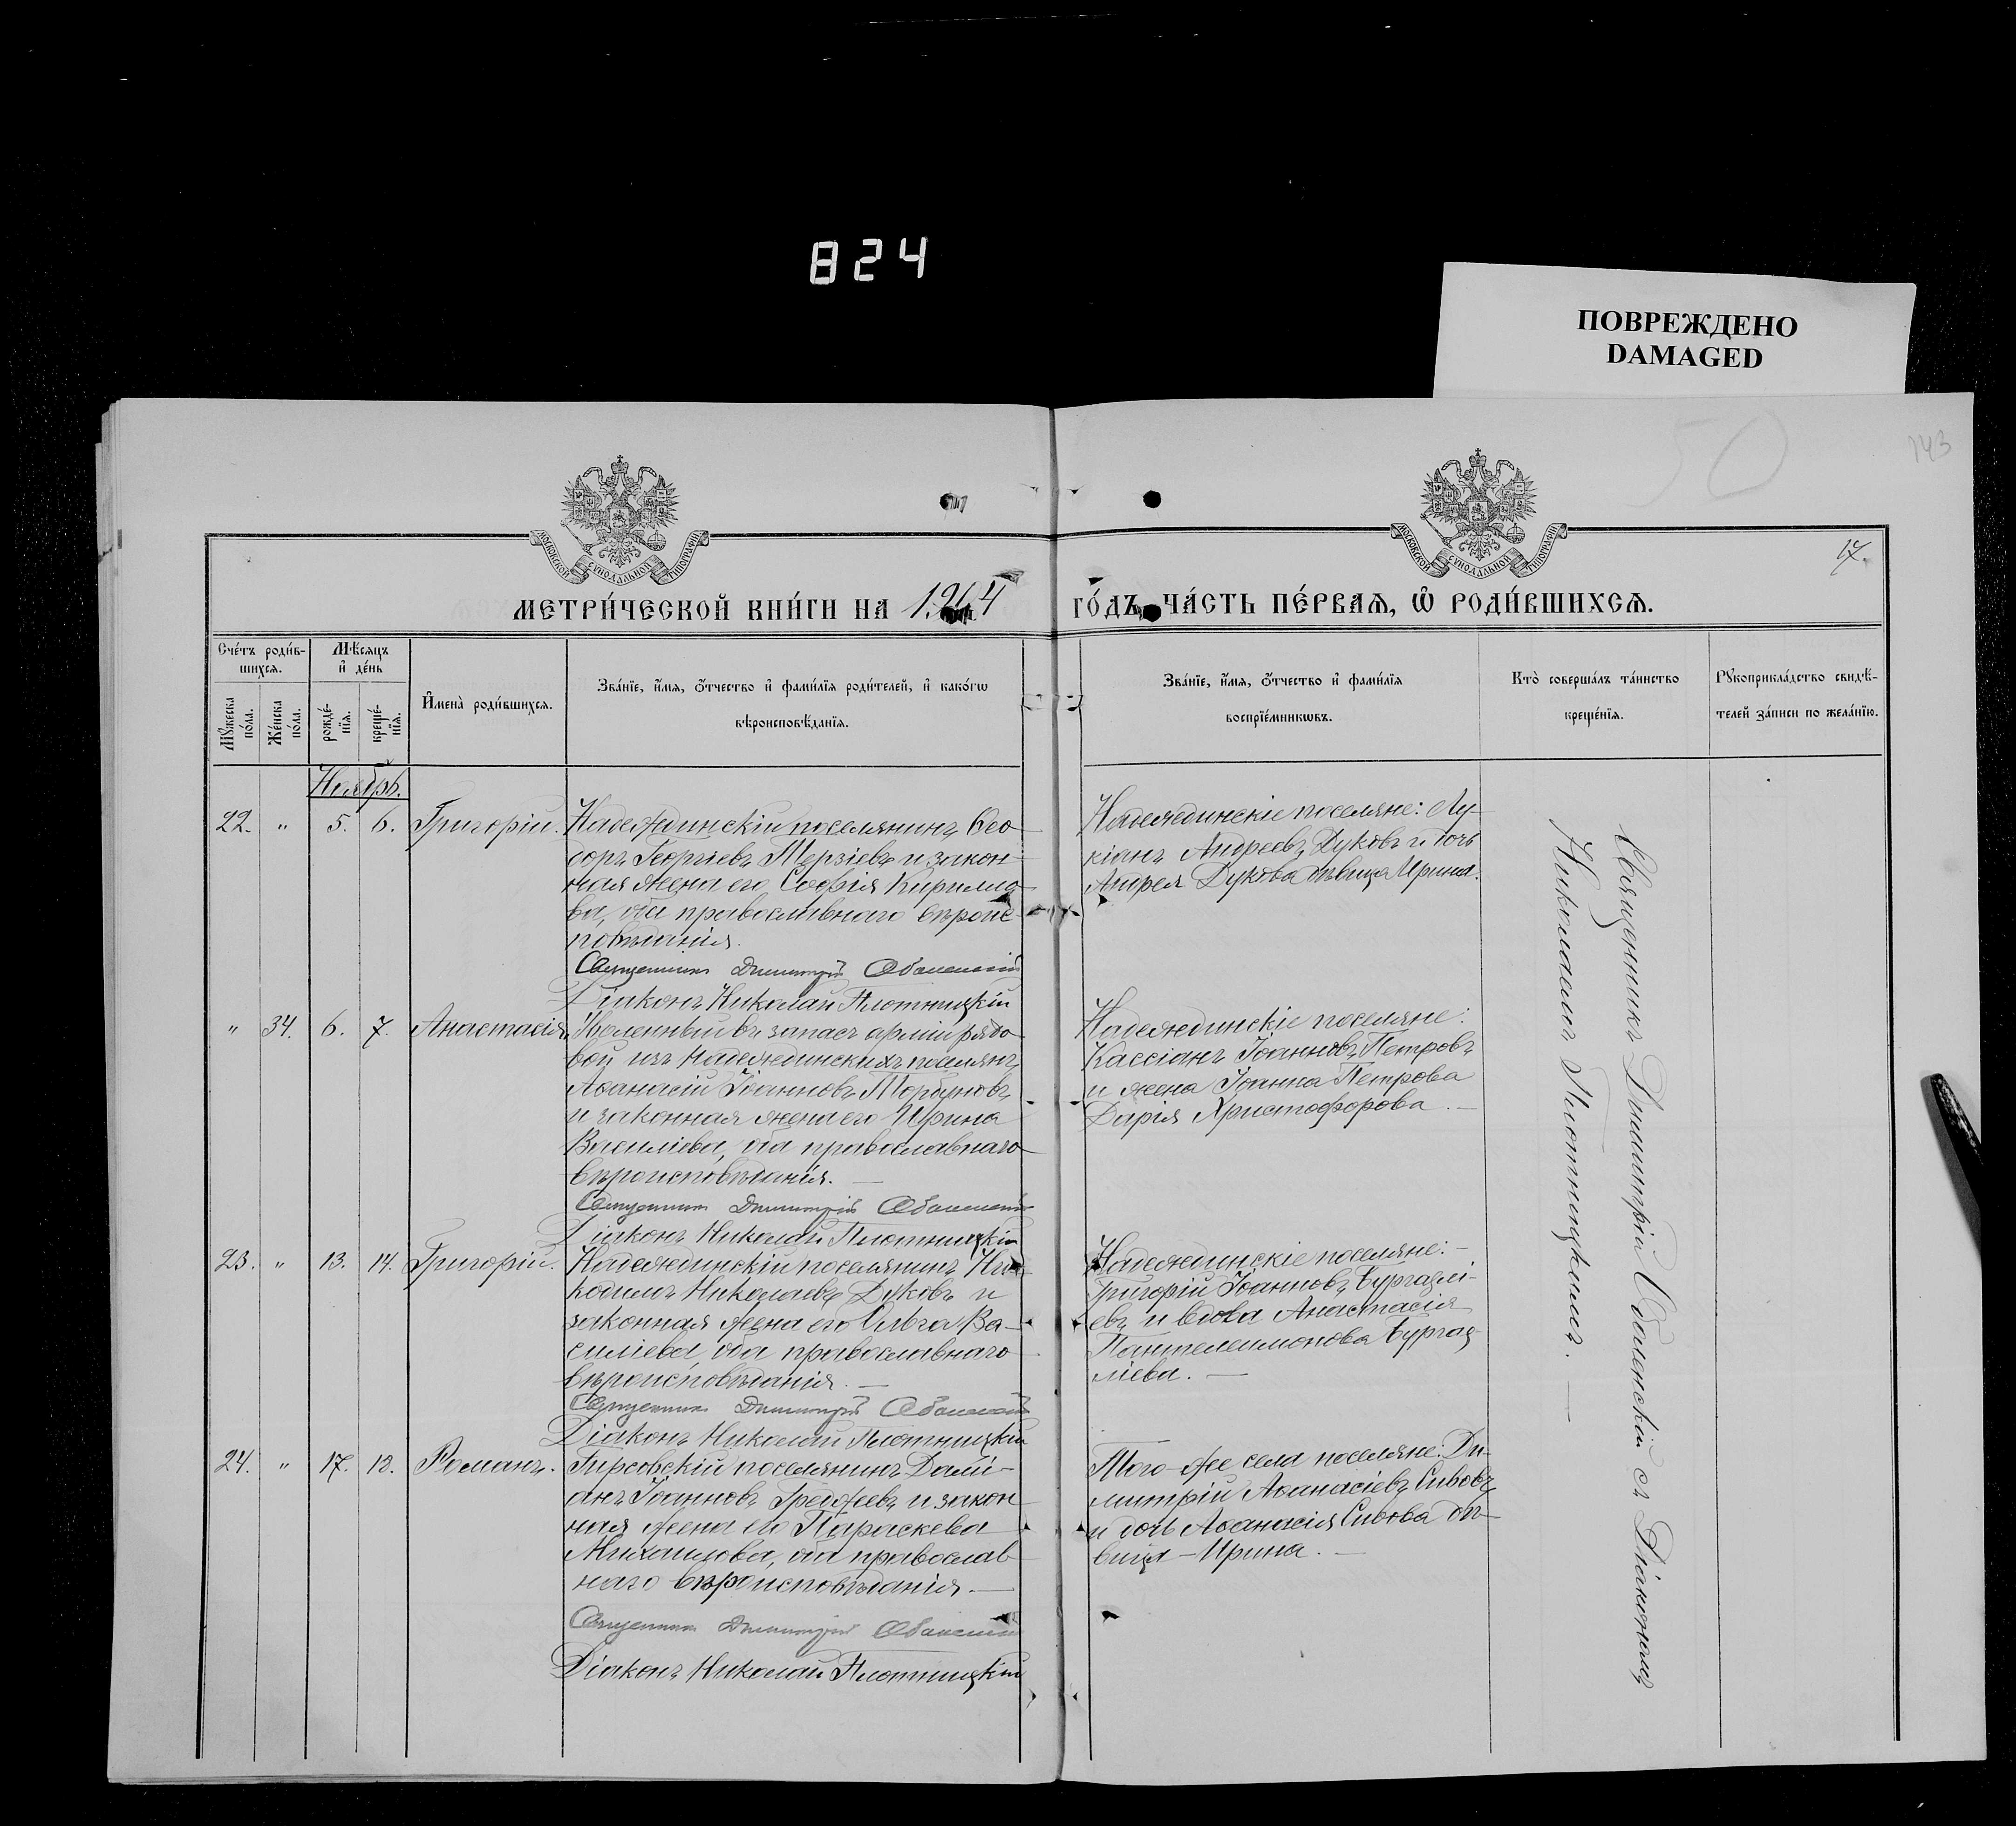 824
ПОВРЕЖДЕНО
DAMAGED
50
143
17.
МОСКОВСКОЙ СУНОДАЛЬНОЙ ТИПОГРАФІИ
МОСКОВСКОЙ СУНОДАЛЬНОЙ ТИПОГРАФІИ
МЕТРИ́ЧЕСКОЙ КНИ́ГИ НА 1904 ГО́ДЪ, ЧА́СТЬ ПЕ́РВАЯ, Ѡ РОДИ́ВШИХСЯ.
Сче́тъ роди́в-
шихся.
Мѣсяцъ
и҆ де́нь
Мꙋжеска
по́ла.
Же́нска
по́ла.
рожде́-
нїя.
креще́-
нїя.
И҆мена̀ роди́вшихся.
Зва́нїе, и҆́мя, ѻ҆́тчество и҆ фами́лїя роди́телей, и҆ како́гѡ
вѣроисповѣ́данїя.
Зва́нїе, и҆́мя, ѻ҆́тчество и҆ фами́лїя
воспрїе́мникѡвъ.
Кто̀ соверша́лъ та́инство
креще́нїя.
Рꙋкоприкла́дство свидѣ́-
телей за́писи по жела́нїю.
Ноябрь.
22. " 5. 6. Григорій.
Надеждинскій поселянинъ Ѳео-
доръ Георгіевъ Терзіевъ и закон-
ная жена его Софія Кирилло-
ва, оба православнаго вѣроис-
повѣданія.
Священникъ Димитрій Оболенскій
Діаконъ Николай Плотницкій
Надеждинскіе поселяне: Лу-
кіанъ Андреевъ Дуковъ и дочь
Андрея Дукова дѣвица Ирина.
" 34. 6. 7. Анастасія.
Уволенный въ запасъ арміи рядо-
вой изъ Надеждинскихъ поселянъ
Аѳанасій Іоанновъ Торбуновъ
и законная жена его Ирина
Василіева, оба православнаго
вѣроисповѣданія. —
Священникъ Димитрій Оболенскій
Діаконъ Николай Плотницкій
Надеждинскіе поселяне:
Кассіанъ Іоанновъ Петровъ
и жена Іоанна Петрова
Дарія Христофорова. —
23. " 13. 14. Григорій.
Надеждинскій поселянинъ Ни-
кодимъ Николаевъ Дуковъ и
законная жена его Ольга Ва-
силіева, оба православнаго
вѣроисповѣданія. —
Священникъ Димитрій Оболенскій
Діаконъ Николай Плотницкій
Надеждинскіе поселяне: —
Григорій Іоанновъ Бургазлі-
евъ и вдова Анастасія
Пантелеимонова Бургаз-
ліева. —
24. " 17. 18. Романъ.
Гирсовскій поселянинъ Дамі-
анъ Іоанновъ Греджевъ и закон-
ная жена его Параскева
Михаилова, оба православ-
наго вѣроисповѣданія. —
Священникъ Димитрій Оболенскій
Діаконъ Николай Плотницкій
Того-же села поселяне: Ди-
митрій Аѳанасіевъ Сивовъ
и дочь Аѳанасія Сивова дѣ-
вица – Ирина. —
Священникъ Димитрій Оболенскій съ Діакономъ
Николаемъ Плотницкимъ. —